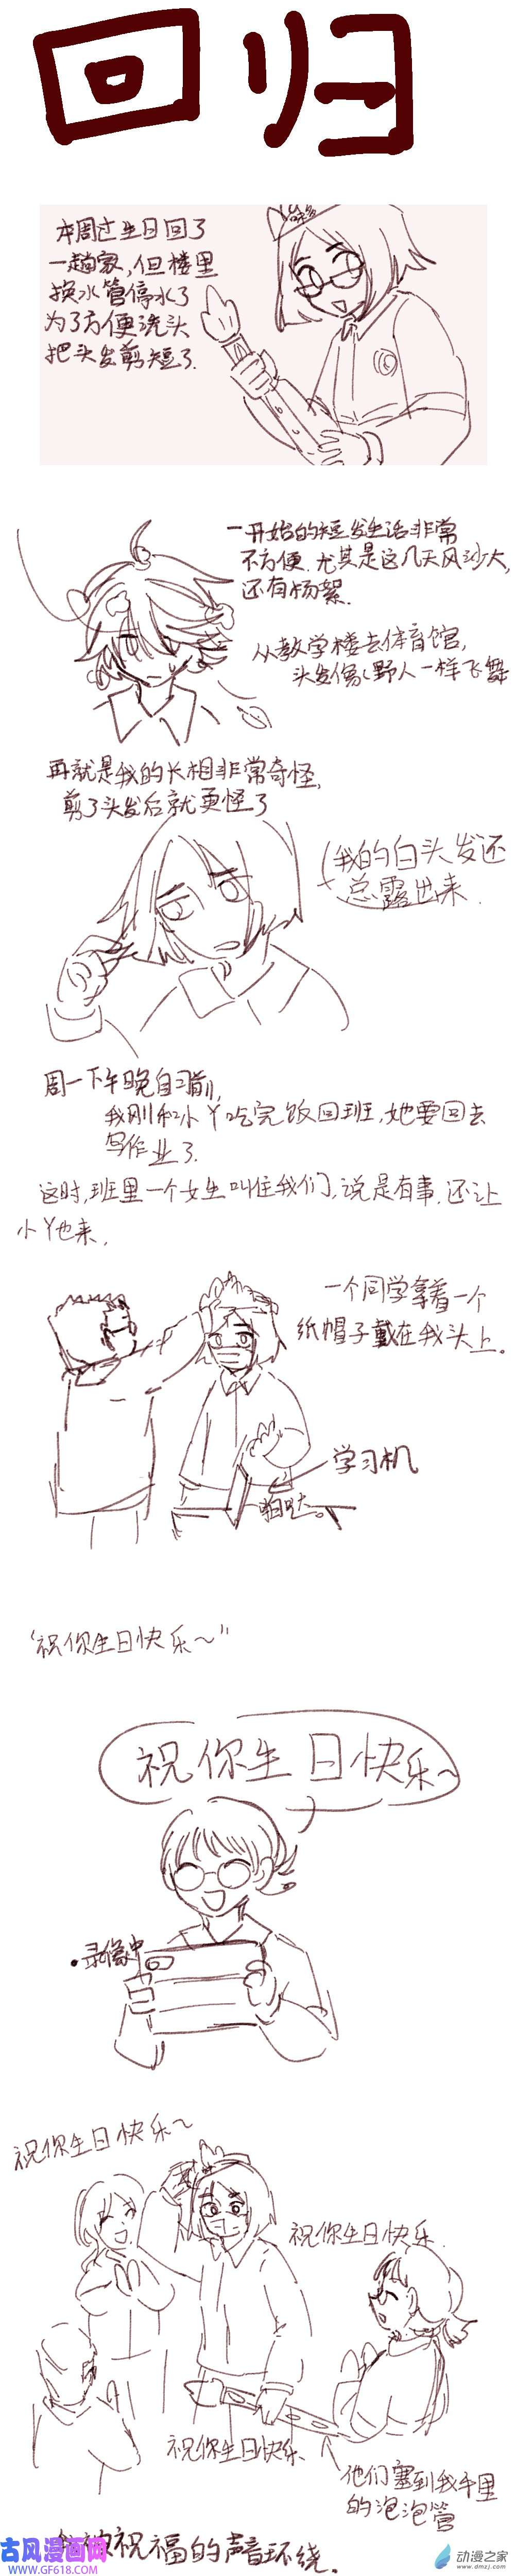 回归
本周过生日回了
一趟家，但楼里
换水管停水了
为了方便洗头
把头发剪短了.
一开始的短发生活非常
不方便.尤其是这几天风沙大,
还有杨絮.
从教学楼去体育馆,
头发像野人一样飞舞
再就是我的长相非常奇怪,
剪了头发后就更怪了
(我的白头发还
总露出来.
周一下午晚自习前,
我刚和小丫吃完饭回班,她要回去
写作业了.
这时,班里一个女生叫住我们,说是有事.还让
小丫也来,
一个同学拿着一个
纸帽子戴在我头上。
学习机
啪哒。
“祝你生日快乐～”
祝你生日快乐～
·录像中
祝你生日快乐～
祝你生日快乐
祝你生日快乐
他们塞到我手里
的泡泡管
祝福的声音环绕.
古风漫画网
WWW.GF618.COM
动漫之家
www.dmzj.com